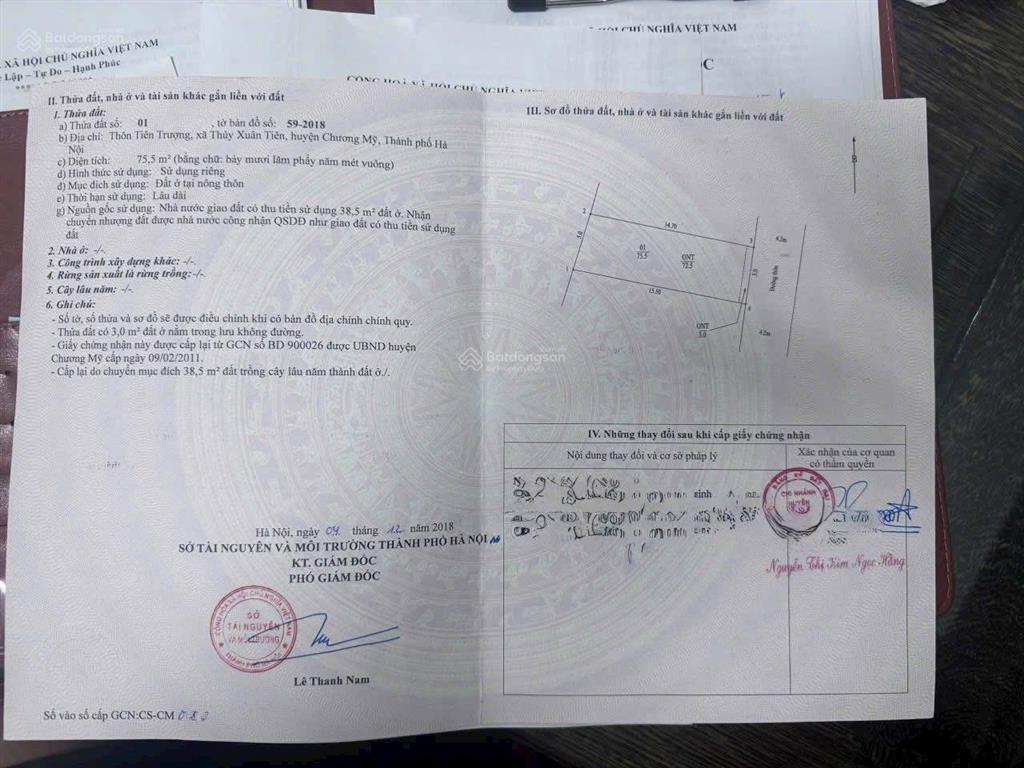 Batdongsan
XÃ HỘI CHỦ NGHĨA VIỆT NAM
Lập – Tự Do – Hạnh Phúc
HỘI CHỦ NGHĨA VIỆT NAM
C
II. Thửa đất, nhà ở và tài sản khác gắn liền với đất
1. Thửa đất:
a) Thửa đất số: 01 , tờ bản đồ số: 59-2018
b) Địa chỉ: Thôn Tiên Trượng, xã Thủy Xuân Tiên, huyện Chương Mỹ, Thành phố Hà
Nội
c) Diện tích: 75,5 m² (bằng chữ: bảy mươi lăm phẩy năm mét vuông)
d) Hình thức sử dụng: Sử dụng riêng
đ) Mục đích sử dụng: Đất ở tại nông thôn
e) Thời hạn sử dụng: Lâu dài
g) Nguồn gốc sử dụng: Nhà nước giao đất có thu tiền sử dụng 38,5 m² đất ở. Nhận
chuyển nhượng đất được nhà nước công nhận QSDĐ như giao đất có thu tiền sử dụng
đất
2. Nhà ở: -/-.
3. Công trình xây dựng khác: -/-.
4. Rừng sản xuất là rừng trồng:-/-.
5. Cây lâu năm: -/-.
6. Ghi chú:
- Số tờ, số thửa và sơ đồ sẽ được điều chỉnh khi có bản đồ địa chính chính quy.
- Thửa đất có 3,0 m² đất ở nằm trong lưu không đường.
- Giấy chứng nhận này được cấp lại từ GCN số BD 900026 được UBND huyện
Chương Mỹ cấp ngày 09/02/2011.
- Cấp lại do chuyển mục đích 38,5 m² đất trồng cây lâu năm thành đất ở./.
Hà Nội, ngày 04 tháng 12 năm 2018
SỞ TÀI NGUYÊN VÀ MÔI TRƯỜNG THÀNH PHỐ HÀ NỘI
KT. GIÁM ĐỐC
PHÓ GIÁM ĐỐC
SỞ
TÀI NGUYÊN
VÀ MÔI TRƯỜNG
Lê Thanh Nam
Số vào sổ cấp GCN:CS-CM 083
III. Sơ đồ thửa đất, nhà ở và tài sản khác gắn liền với đất
B
2
14.70
3
5.0
01
75.5
ONT
72.5
5.0
4.3m
Đường thôn
1
15.50
4
ONT
3.0
4.2m
Batdongsan
IV. Những thay đổi sau khi cấp giấy chứng nhận
Nội dung thay đổi và cơ sở pháp lý
Xác nhận của cơ quan
có thẩm quyền
sinh
CHI NHÁNH
HUYỆN
Nguyễn Thị Kim Ngọc Hằng